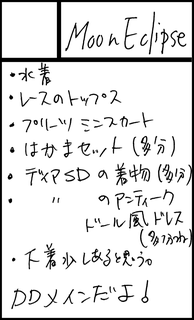 MoonEclipse
・水着
・レースのトップス
・プリーツミニスカート
・はかまセット(多分)
・ディアSDの着物(多分)
・ 〃 のアンティーク
ドール風ドレス
(多分ね)
・下着少しあると思う。
DDメインだよ!